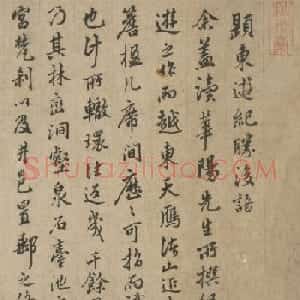 題東遊紀勝後語
余蓋讀華陽先生所撰
遊之作而越東天雁法山
簷楹几席間歷歷可指而
也計所轍環往返幾千餘
乃其林巒洞壑泉石臺池之
宮梵刹以及井邑置郵之
Shufaziliao.com